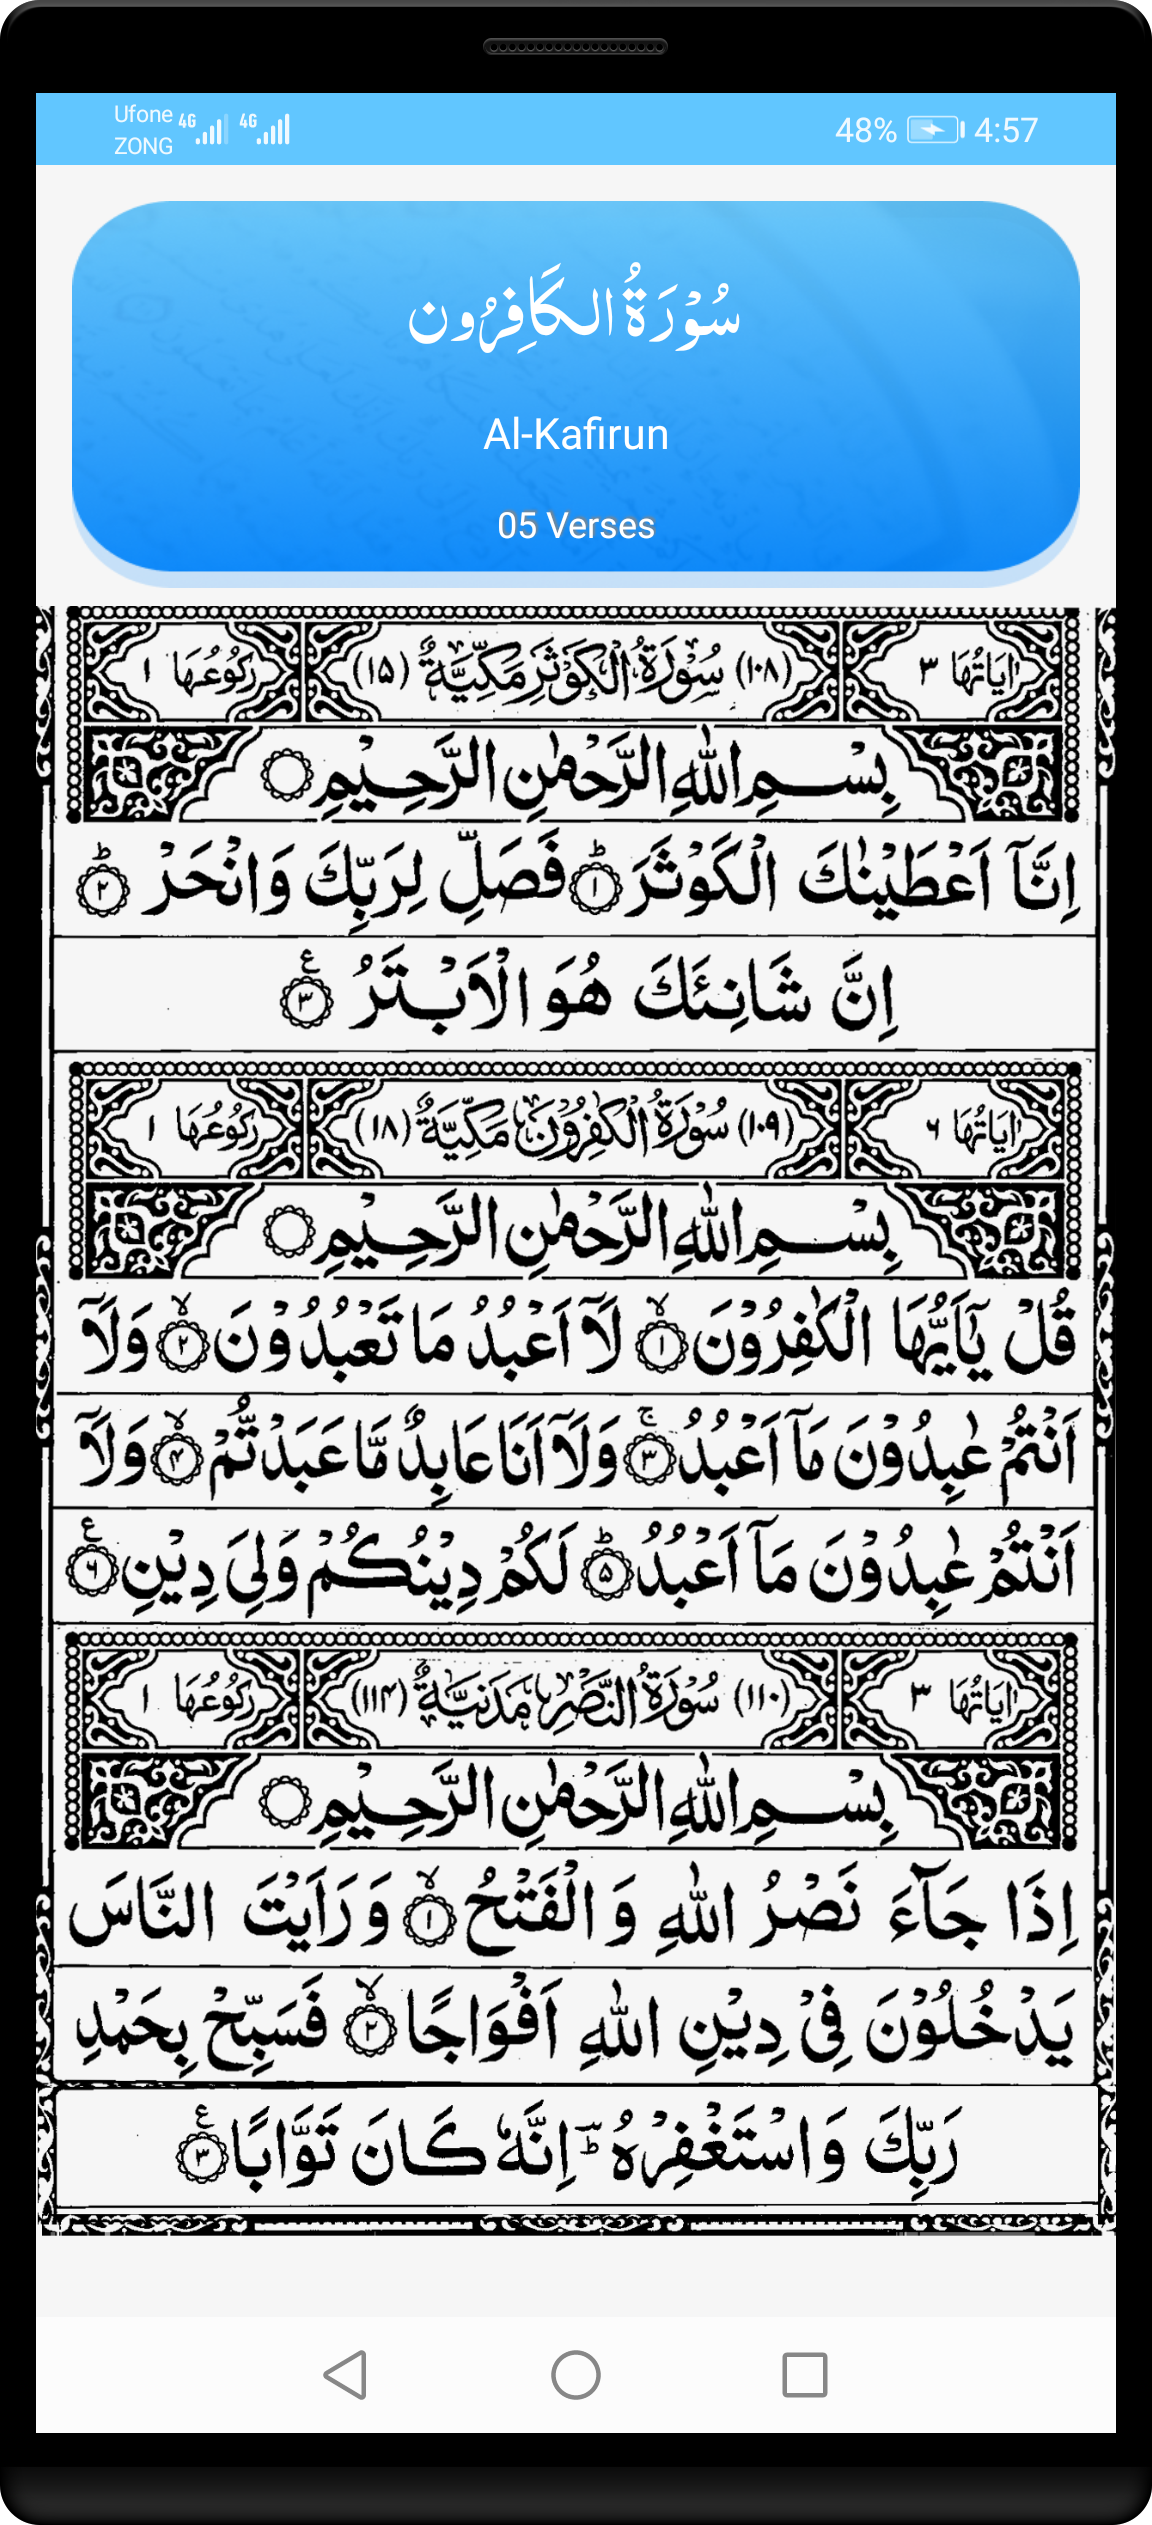 Ufone 4G 4G
ZONG
48% 4:57
سُوْرَةُ الكَافِرُون
Al-Kafirun
05 Verses
اٰيَاتُهَا ٣ (١٠٨) سُوْرَةُ الْكَوْثَرِ مَكِّيَّةٌ (١٥) رُكُوْعُهَا ١
بِسْمِ اللّٰهِ الرَّحْمٰنِ الرَّحِيْمِ
اِنَّآ اَعْطَيْنٰكَ الْكَوْثَرَ ؕ١ فَصَلِّ لِرَبِّكَ وَانْحَرْ ؕ٢
اِنَّ شَانِئَكَ هُوَ الْاَبْتَرُ ٣ ع
اٰيَاتُهَا ٦ (١٠٩) سُوْرَةُ الْكٰفِرُوْنَ مَكِّيَّةٌ (١٨) رُكُوْعُهَا ١
بِسْمِ اللّٰهِ الرَّحْمٰنِ الرَّحِيْمِ
قُلْ يٰٓاَيُّهَا الْكٰفِرُوْنَ ۙ١ لَآ اَعْبُدُ مَا تَعْبُدُوْنَ ۙ٢ وَلَآ
اَنْتُمْ عٰبِدُوْنَ مَآ اَعْبُدُ ۚ٣ وَلَآ اَنَا عَابِدٌ مَّا عَبَدْتُّمْ ۙ۴ وَلَآ
اَنْتُمْ عٰبِدُوْنَ مَآ اَعْبُدُ ؕ۵ لَكُمْ دِيْنُكُمْ وَلِيَ دِيْنِ ٦ ع
اٰيَاتُهَا ٣ (١١٠) سُوْرَةُ النَّصْرِ مَدَنِيَّةٌ (١١۴) رُكُوْعُهَا ١
بِسْمِ اللّٰهِ الرَّحْمٰنِ الرَّحِيْمِ
اِذَا جَآءَ نَصْرُ اللّٰهِ وَ الْفَتْحُ ۙ١ وَ رَاَيْتَ النَّاسَ
يَدْخُلُوْنَ فِيْ دِيْنِ اللّٰهِ اَفْوَاجًا ۙ٢ فَسَبِّحْ بِحَمْدِ
رَبِّكَ وَ اسْتَغْفِرْهُ ؕ اِنَّهٗ كَانَ تَوَّابًا ٣ ع